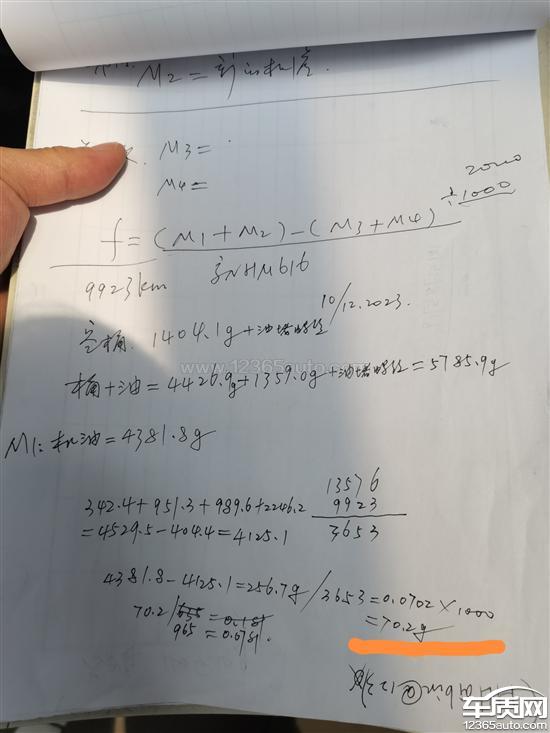 M2 = 新的机油.
M3 =
M4 =
f = (M1 + M2) - (M3 + M4) ÷ 1000
9923km
京NHM616
10/12.2023.
空桶. 1404.1g + 油堵螺丝
www.12365auto.com
桶 + 油 = 4426.9g + 1359.0g + 油堵螺丝 = 5785.9g
M1: 机油 = 4381.8g
342.4 + 951.3 + 989.6 + 2246.2
= 4529.5 - 404.4 = 4125.1
13576
9923
3653
4381.8 - 4125.1 = 256.7g / 3653 = 0.0702 × 1000
= 70.2g
70.2 / 635 = 0.181
965 = 0.0781.
车质网
12365auto.com